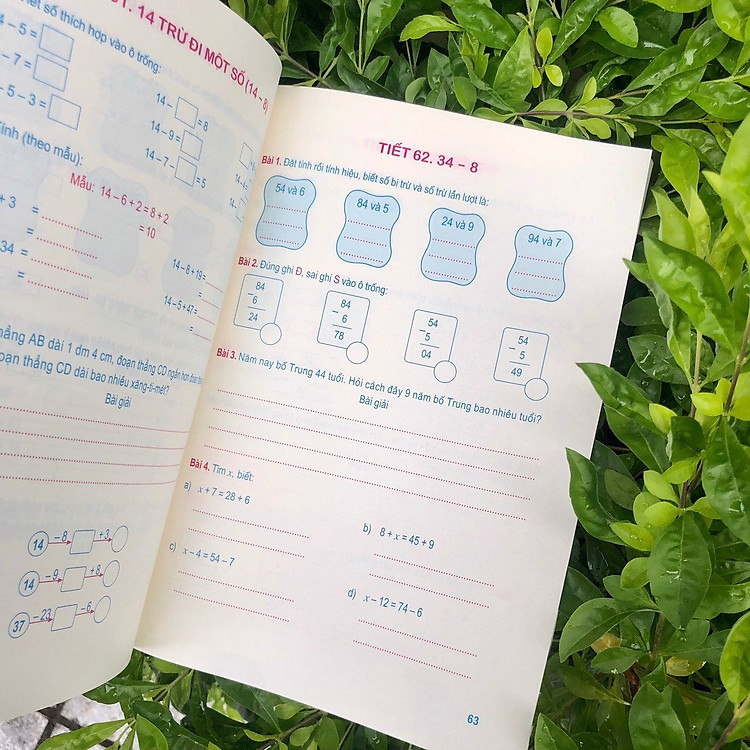 14 TRỪ ĐI MỘT SỐ (14 – 8)
số thích hợp vào ô trống:
4 – 5 =
– 7 =
– 5 – 3 =
14 – = 8
14 – 9 =
14 – 7 – = 5
Tính (theo mẫu):
Mẫu: 14 – 6 + 2 = 8 + 2
= 10
+ 3 =
=
34 =
=
14 – 8 + 19 =
=
14 – 5 + 47 =
=
thẳng AB dài 1 dm 4 cm, đoạn thẳng CD ngắn hơn đoạn
đoạn thẳng CD dài bao nhiêu xăng-ti-mét?
Bài giải
14 – 8 + 3
14 – 9 + 8
37 – 23 – 6
TIẾT 62. 34 – 8
Bài 1. Đặt tính rồi tính hiệu, biết số bị trừ và số trừ lần lượt là:
54 và 6
84 và 5
24 và 9
94 và 7
Bài 2. Đúng ghi Đ, sai ghi S vào ô trống:
84
– 6
24
84
– 6
78
54
– 5
04
54
– 5
49
Bài 3. Năm nay bố Trung 44 tuổi. Hỏi cách đây 9 năm bố Trung bao nhiêu tuổi?
Bài giải
Bài 4. Tìm x, biết:
a) x + 7 = 28 + 6
b) 8 + x = 45 + 9
c) x – 4 = 54 – 7
d) x – 12 = 74 – 6
63